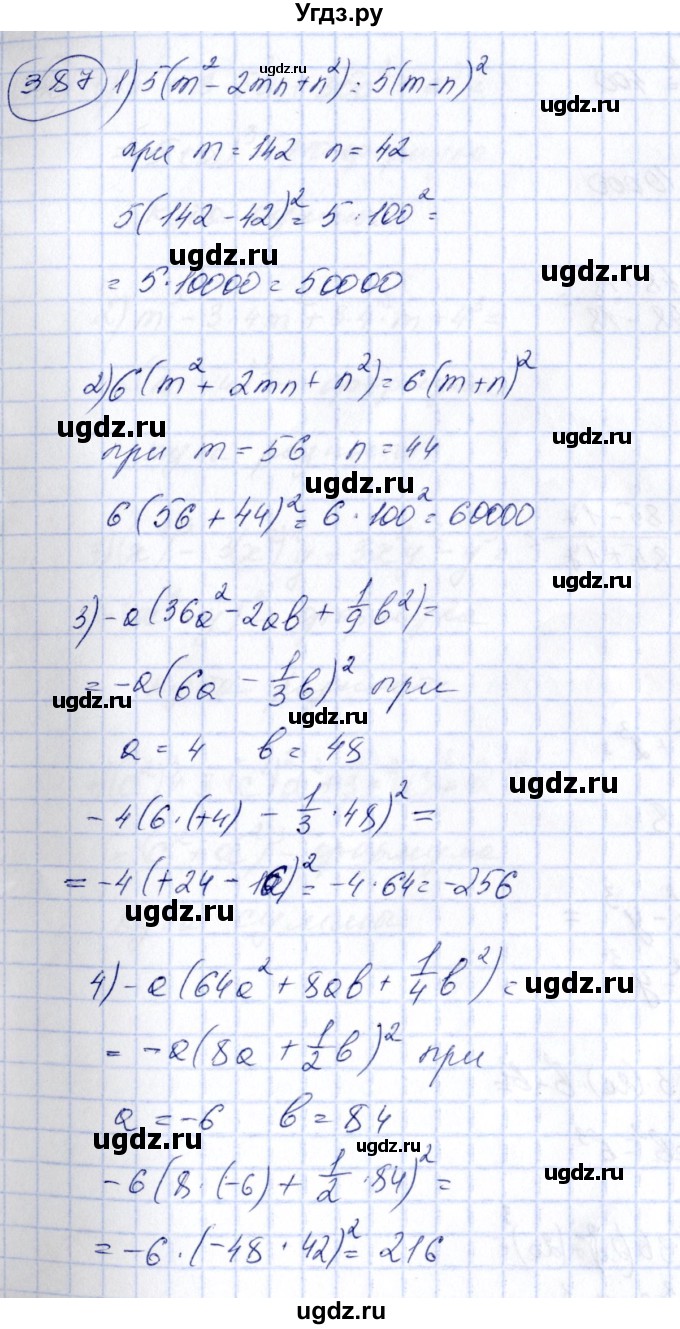 Угдз.ру
387 1) 5(m² - 2mn + n²) = 5(m-n)²
ugdz.ru
ugdz.ru
при m = 142 n = 42
5(142 - 42)² = 5 · 100² =
ugdz.ru
ugdz.ru
= 5·10000 = 50000
2) 6(m² + 2mn + n²) = 6(m+n)²
ugdz.ru
ugdz.ru
при m = 56 n = 44
ugdz.ru
6(56 + 44)² = 6 · 100² = 60000
ugdz.ru
3) -a(36a² - 2ab + 1/9 b²) =
= -a(6a - 1/3 b)² при
ugdz.ru
ugdz.ru
a = 4 b = 48
ugdz.ru
-4(6·(+4) - 1/3 · 48)² =
= -4(+24 - 16)² = -4·64 = -256
ugdz.ru
4) -a(64a² + 8ab + 1/4 b²) =
ugdz.ru
= -a(8a + 1/2 b)² при
a = -6 b = 84
ugdz.ru
ugdz.ru
-6(8·(-6) + 1/2 · 84)² =
= -6·(-48 · 42)² = 216
ugdz.ru
ugdz.ru